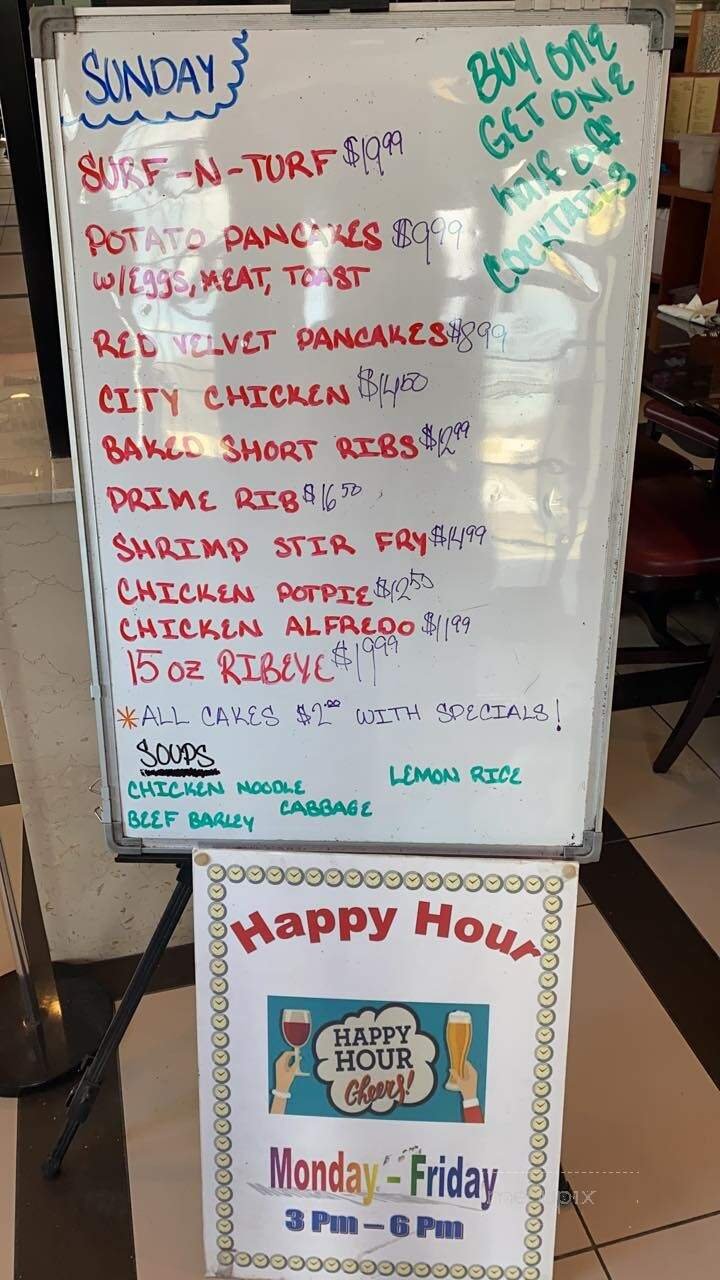 SUNDAY
BUY ONE
GET ONE
half off
COCKTAILS
SURF-N-TURF $19.99
POTATO PANCAKES $9.99
W/EGGS, MEAT, TOAST
RED VELVET PANCAKES $8.99
CITY CHICKEN $14.50
BAKED SHORT RIBS $12.99
PRIME RIB $16.50
SHRIMP STIR FRY $14.99
CHICKEN POTPIE $12.50
CHICKEN ALFREDO $11.99
15 OZ RIBEYE $19.99
*ALL CAKES $2.00 WITH SPECIALS!
SOUPS
CHICKEN NOODLE
LEMON RICE
BEEF BARLEY
CABBAGE
Happy Hour
HAPPY
HOUR
Cheers!
Monday - Friday
3 Pm – 6 Pm